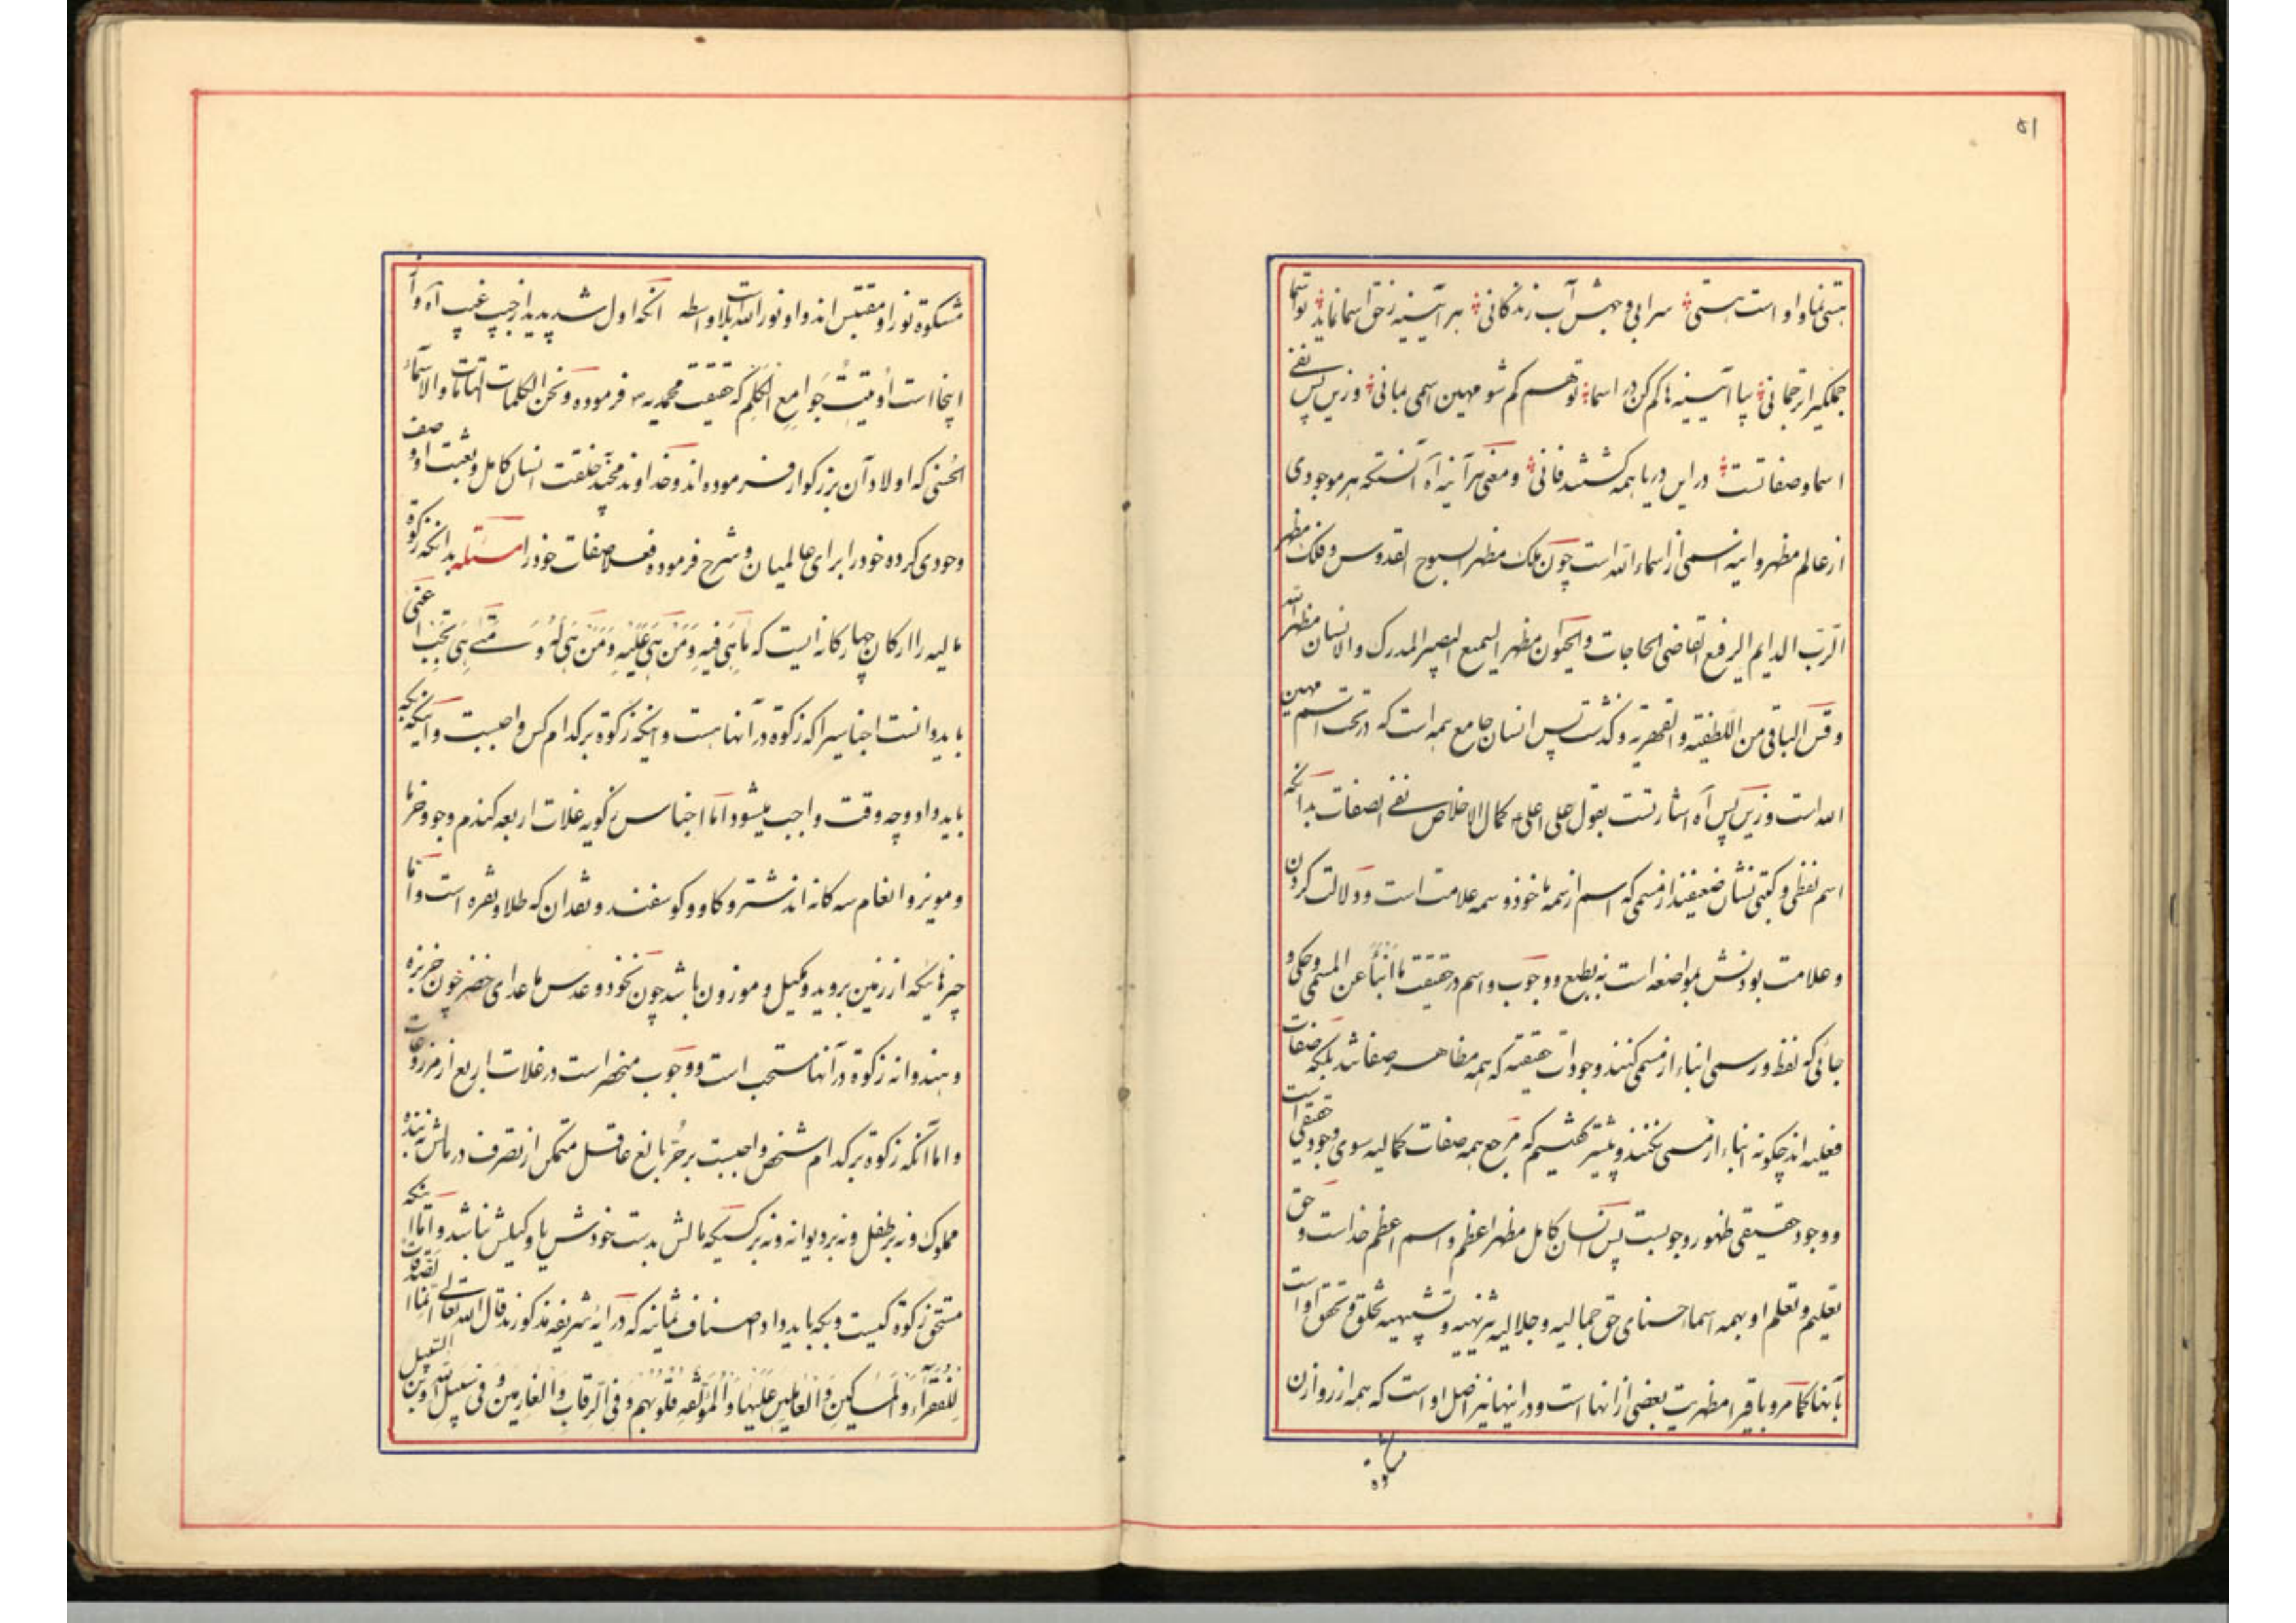 ۵۱
هستی نما و او است هستی سرابی و جهش آب زندگانی هر آیینه ز حق اسما نماید تو اسما
جملگیرا ترجمانی بیا آیینه‌ها گم کن در اسما تو هم گم شو مهین اسمی بمانی وزین پس نفی
اسما و صفاتست در این دریا همه گشتند فانی و معنی هر آینه آه آنستکه هر موجودی
از عالم مظهر و اینه اسمی از اسماء الله است چون ملک مظهر السبوح القدوس و فلک مظهر
الرب الدایم الرفیع القاضی الحاجات و الحیوان مظهر السمیع البصیر المدرک و الانسان مظهر الله
و قس الباقی من اللطفیه و القهریه و گذشت پس انسان جامع همه است که در تحت اسم مهین
الله است وزین پس آه اشارتست بقول علی اعلی کمال الاخلاص نفی الصفات بدانکه
اسم لفظی و کتبی نشان ضعیفند از مسمی که اسم از سمه ماخوذ و سمه علامت است و دلالت کردن
و علامت بودنش بمواضعه است نه بطبع و وجوب و اسم در حقیقت ما انبأ عن المسمی و حکی و
جائی که لفظ و رسمی انباء از مسمی کنند وجودات حقیقیه که همه مظاهر صفاتند بلکه صفات
فعلیه اند چگونه انباء از مسمی نکنند و پیشتر گفتیم که مرجع همه صفات کمالیه سوی وجود حقیقی است
و وجود حقیقی ظهور وجوبست پس انسان کامل مظهر اعظم و اسم اعظم خداست و حق
تعلیم و تعلم او بهمه اسماء حسنای حق جمالیه و جلالیه تنزیهیه و تشبیهیه تخلق و تحقق او است
بآنها کما مر و باقی را مظهریت بعضی از انها است و در اینها نیز اصل او است که همه از روازن
مشکوة
مشکوة نور او مقتبس اند و او نور الله است بلا واسطه آنکه اول شد پدید از جیب غیب آه و از
اینجا است اوتیت جوامع الکلم که حقیقت محمدیه فرموده و نحن الکلمات التامات و الاسماء
الحسنی که اولاد آن بزرگوار فرموده اند و خداوند مجید خلقت انسان کامل و بعثت او وصف
وجودی کرده خود را برای عالمیان و شرح فرموده فعلا صفات خود را مسئله بدانکه زکوة
مالیه را ارکان چهارگانه ایست که ما هی فیه و من هی علیه و من هی له و متی هی تجب اعنی
باید دانست اجناسیرا که زکوة در آنها هست و اینکه زکوة بر کدام کس واجبست و اینکه بکه
باید داد و چه وقت واجب میشود اما اجناس زکویه غلات اربعه گندم و جو و خرما
و مویز و انعام سه گانه اند شتر و گاو و گوسفند و نقدان که طلا و نقره است و اما
چیزهائیکه از زمین بروید و مکیل و موزون باشد چون نخود و عدس ماعدای خضر چون خربزه
و هندوانه زکوة در آنها مستحب است و وجوب منحصر است در غلات اربع از مزروعات
و اما آنکه زکوة بر کدام شخص واجبست بر حر بالغ عاقل متمکن از تصرف در مالش نه بنده
مملوک و نه بر طفل و نه بر دیوانه و نه بر کسیکه مالش بدست خودش یا وکیلش نباشد و اما اینکه
مستحق زکوة کیست و بکه باید داد اصناف ثمانیه که در آیه شریفه مذکورند قال الله تعالی انما الصدقات
للفقراء و المساکین و العاملین علیها و المؤلفة قلوبهم و فی الرقاب و الغارمین و فی سبیل الله و ابن السبیل